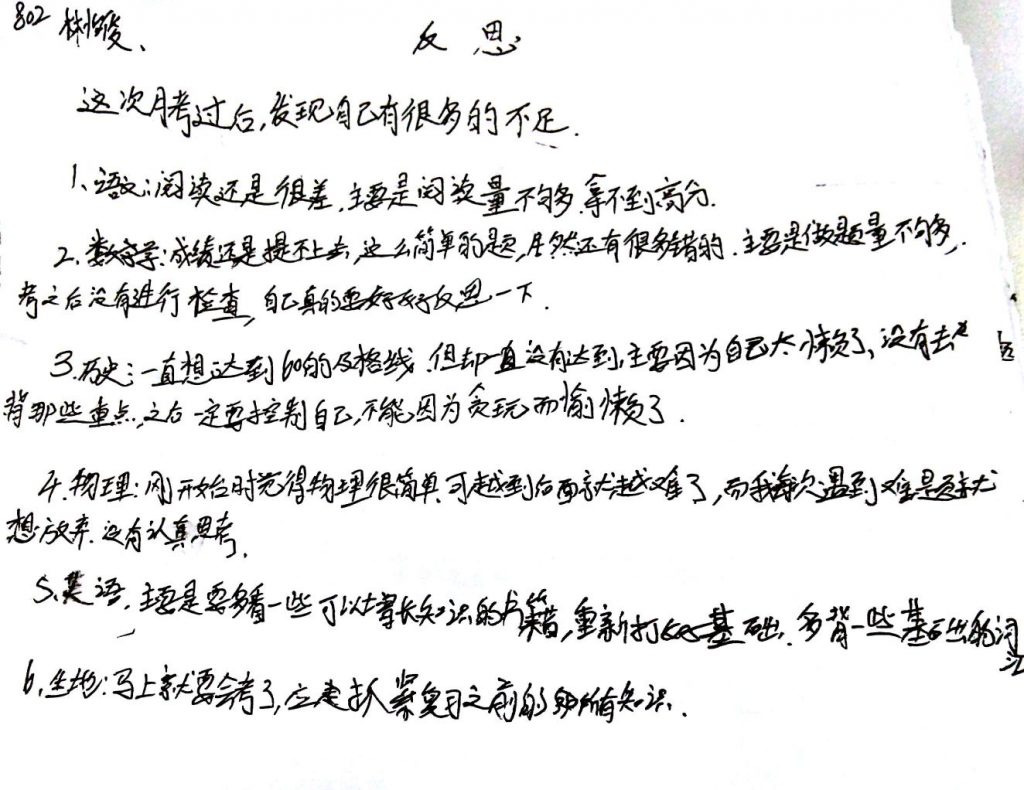 802 林
反思
这次月考过后,发现自己有很多的不足.
1、语文:阅读还是很差.主要是阅读量不够多.拿不到高分.
2.数学:成绩还是提不上去,这么简单的题,居然还有很多错的.主要是做题量不够多.
考之后没有进行检查,自己真的要好好反思一下.
3.历史:一直想达到60的及格线.但却一直没有达到,主要因为自己太懒了、没有去
背那些重点,之后一定要控制自己,不能因为贪玩而偷懒了.
4.物理:刚开始时觉得物理很简单.可越到后面就越难了,而我每次遇到难题就
想放弃.没有认真思考.
5.英语.主要是要多看一些可以增长知识的书籍,重新打好基础.多背一些基础的词
汇
6.生地:马上就要会考了,应走抓紧复习之前的所有知识.